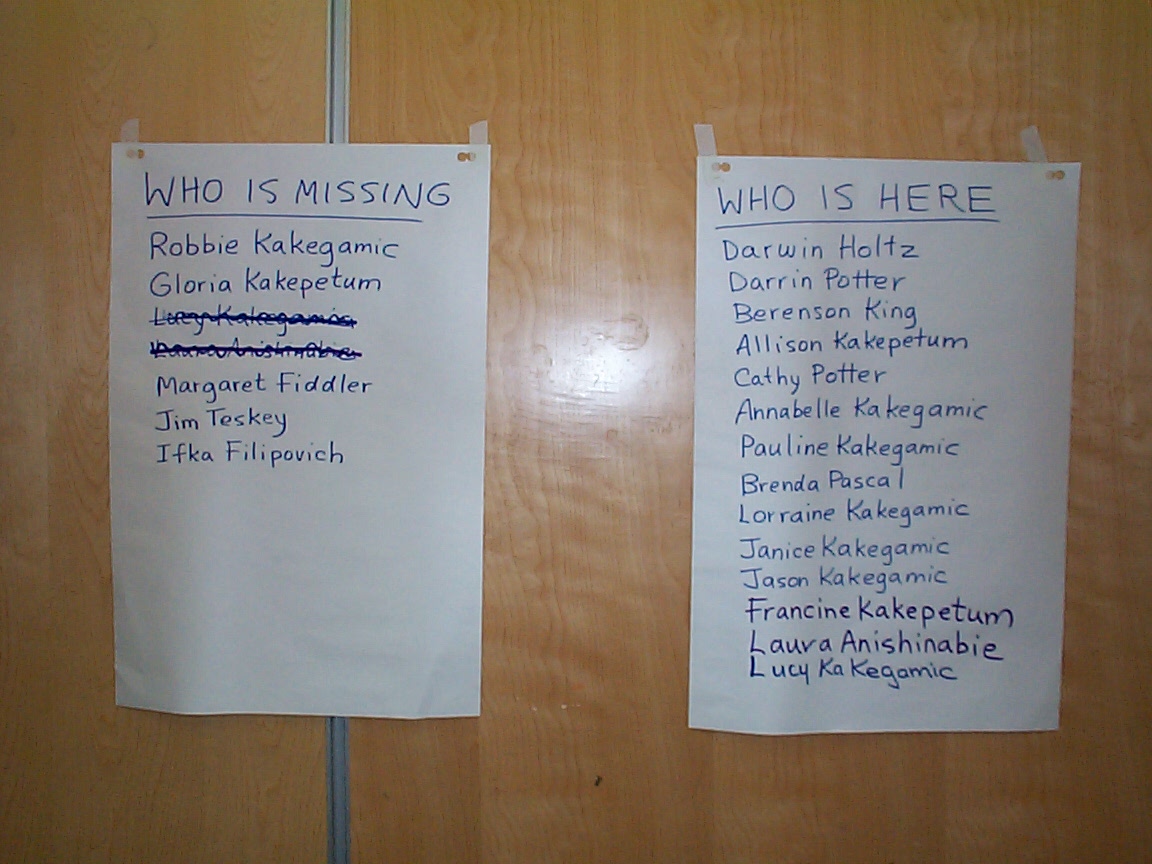 WHO IS MISSING
Robbie Kakegamic
Gloria Kakepetum
Lucy Kakegamic
Laura Anishinabie
Margaret Fiddler
Jim Teskey
Ifka Filipovich
WHO IS HERE
Darwin Holtz
Darrin Potter
Berenson King
Allison Kakepetum
Cathy Potter
Annabelle Kakegamic
Pauline Kakegamic
Brenda Pascal
Lorraine Kakegamic
Janice Kakegamic
Jason Kakegamic
Francine Kakepetum
Laura Anishinabie
Lucy KaKegamic